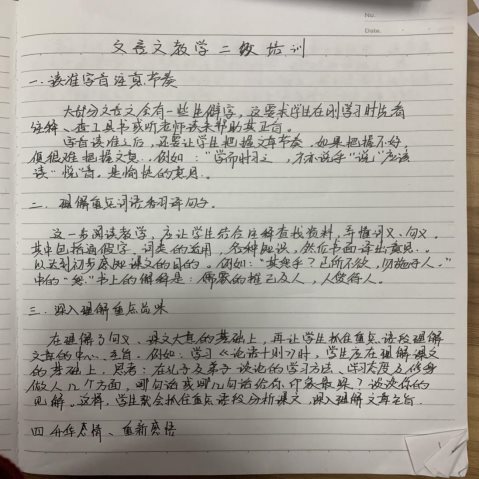 No.
Date.
文言文教学二级培训
一、读准字音注意节奏
大部分文言文会有一些生僻字，这要求学生在刚学习时先看
注解、查工具书或听老师读来帮助其正音。
字音读准之后，还要让学生把握文章节奏，如果把握不好，
便很难把握文意。例如："学而时习之，不亦说乎"说"应该
读"悦"音，是愉快的意思。
二、理解重点词语看译句子。
这一步阅读教学，应让学生结合注释查找资料，弄懂词义、句义。
其中包括通假字、词类的活用，各种知识，然后书面译出意思。
以达到初步感知课文的目的。例如："其恕乎？己所不欲，勿施于人。"
中的"恕"书上的解释是：儒家的推己及人，仁爱待人。
三、深入理解重点品味
在理解了句义、课文大意的基础上，再让学生抓住重点语段理解
文章的中心、主旨，例如：学习《论语十则》时，学生应在理解课文
的基础上，思考：在孔子及弟子谈论的学习方法、学习态度及修身
做人几个方面，哪句话或哪几句话给你印象最深？谈谈你的
见解。这样，学生就会抓住重点语段分析课文，深入理解文章主旨。
四、情、重新感悟